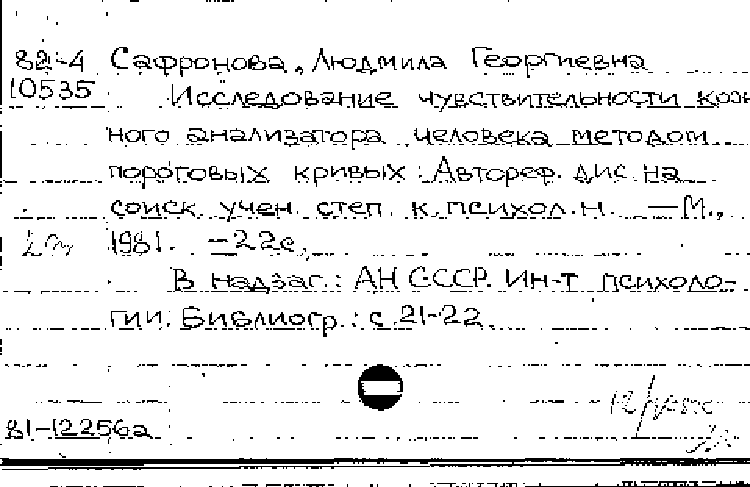 82-4 Сафронова, Людмила Георгиевна
10535 Исследование чувствительности кож
ного анализатора человека методом
пороговых кривых: Автореф. дис. на
соиск. учен. степ. к. психол. н. — М.,
1981. — 22 с.
В надзаг.: АН СССР. Ин-т психоло-
гии. Библиогр.: с. 21-22.
81-12256а